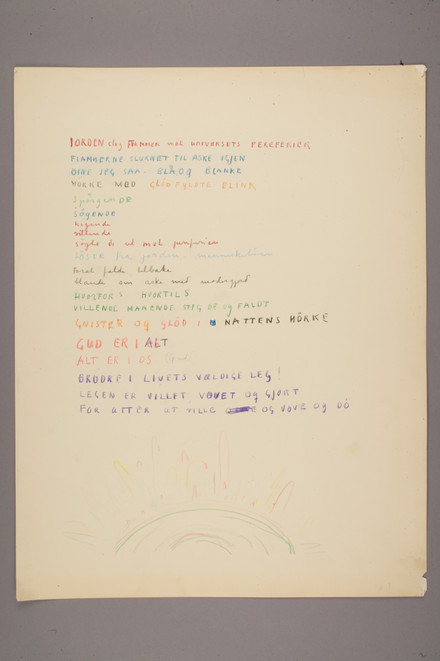 JORDEN slog flammen mod UNIVERSETS PEREFERIER
FLAMMERNE SLUKKET TIL ASKE IGJEN
ÖINE JEG SAA - BLAA OG BLANKE
MÖRKE MED GLÖDFYLDTE BLINK
Spörgende
Sögende
higende
villende
sögte de ud mod periferien
LÖSTE fra jordens
kort faldt tilbake
blande sin aske med
HVORFOR? HVORTIL?
VILLENDE HAABENDE STEG DE OG FALDT
GNISTER OG GLÖD I NATTENS MÖRKE
GUD ER I ALT
ALT ER I OS
BRÖDRE I LIVETS VÆLDIGE LEG!
LEGEN ER VILLET VOVET OG GJORT
FOR ATTER AT VILLE OG VOVE OG DÖ